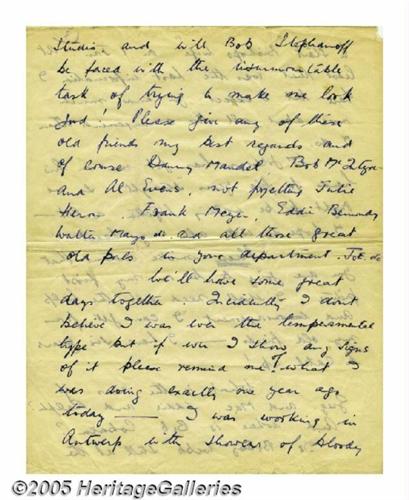 Studio and will Bob Stephanoff
be faced with the insurmountable
task of trying to make me look
good! Please give any of these
old friends my best regards and
of course Danny Mandel Bob
And Al Evens, not forgetting Julie
Heron. Frank Meyer. Eddie
Walter Mayo and all those great
old pals in your department.
We'll have some great
days together Incidentally I don't
believe I was ever the temperamental
type but if ever I show any signs
of it please remind me of what I
was doing exactly one year ago
today — I was working in
Antwerp with showers of bloody
©2005 HeritageGalleries